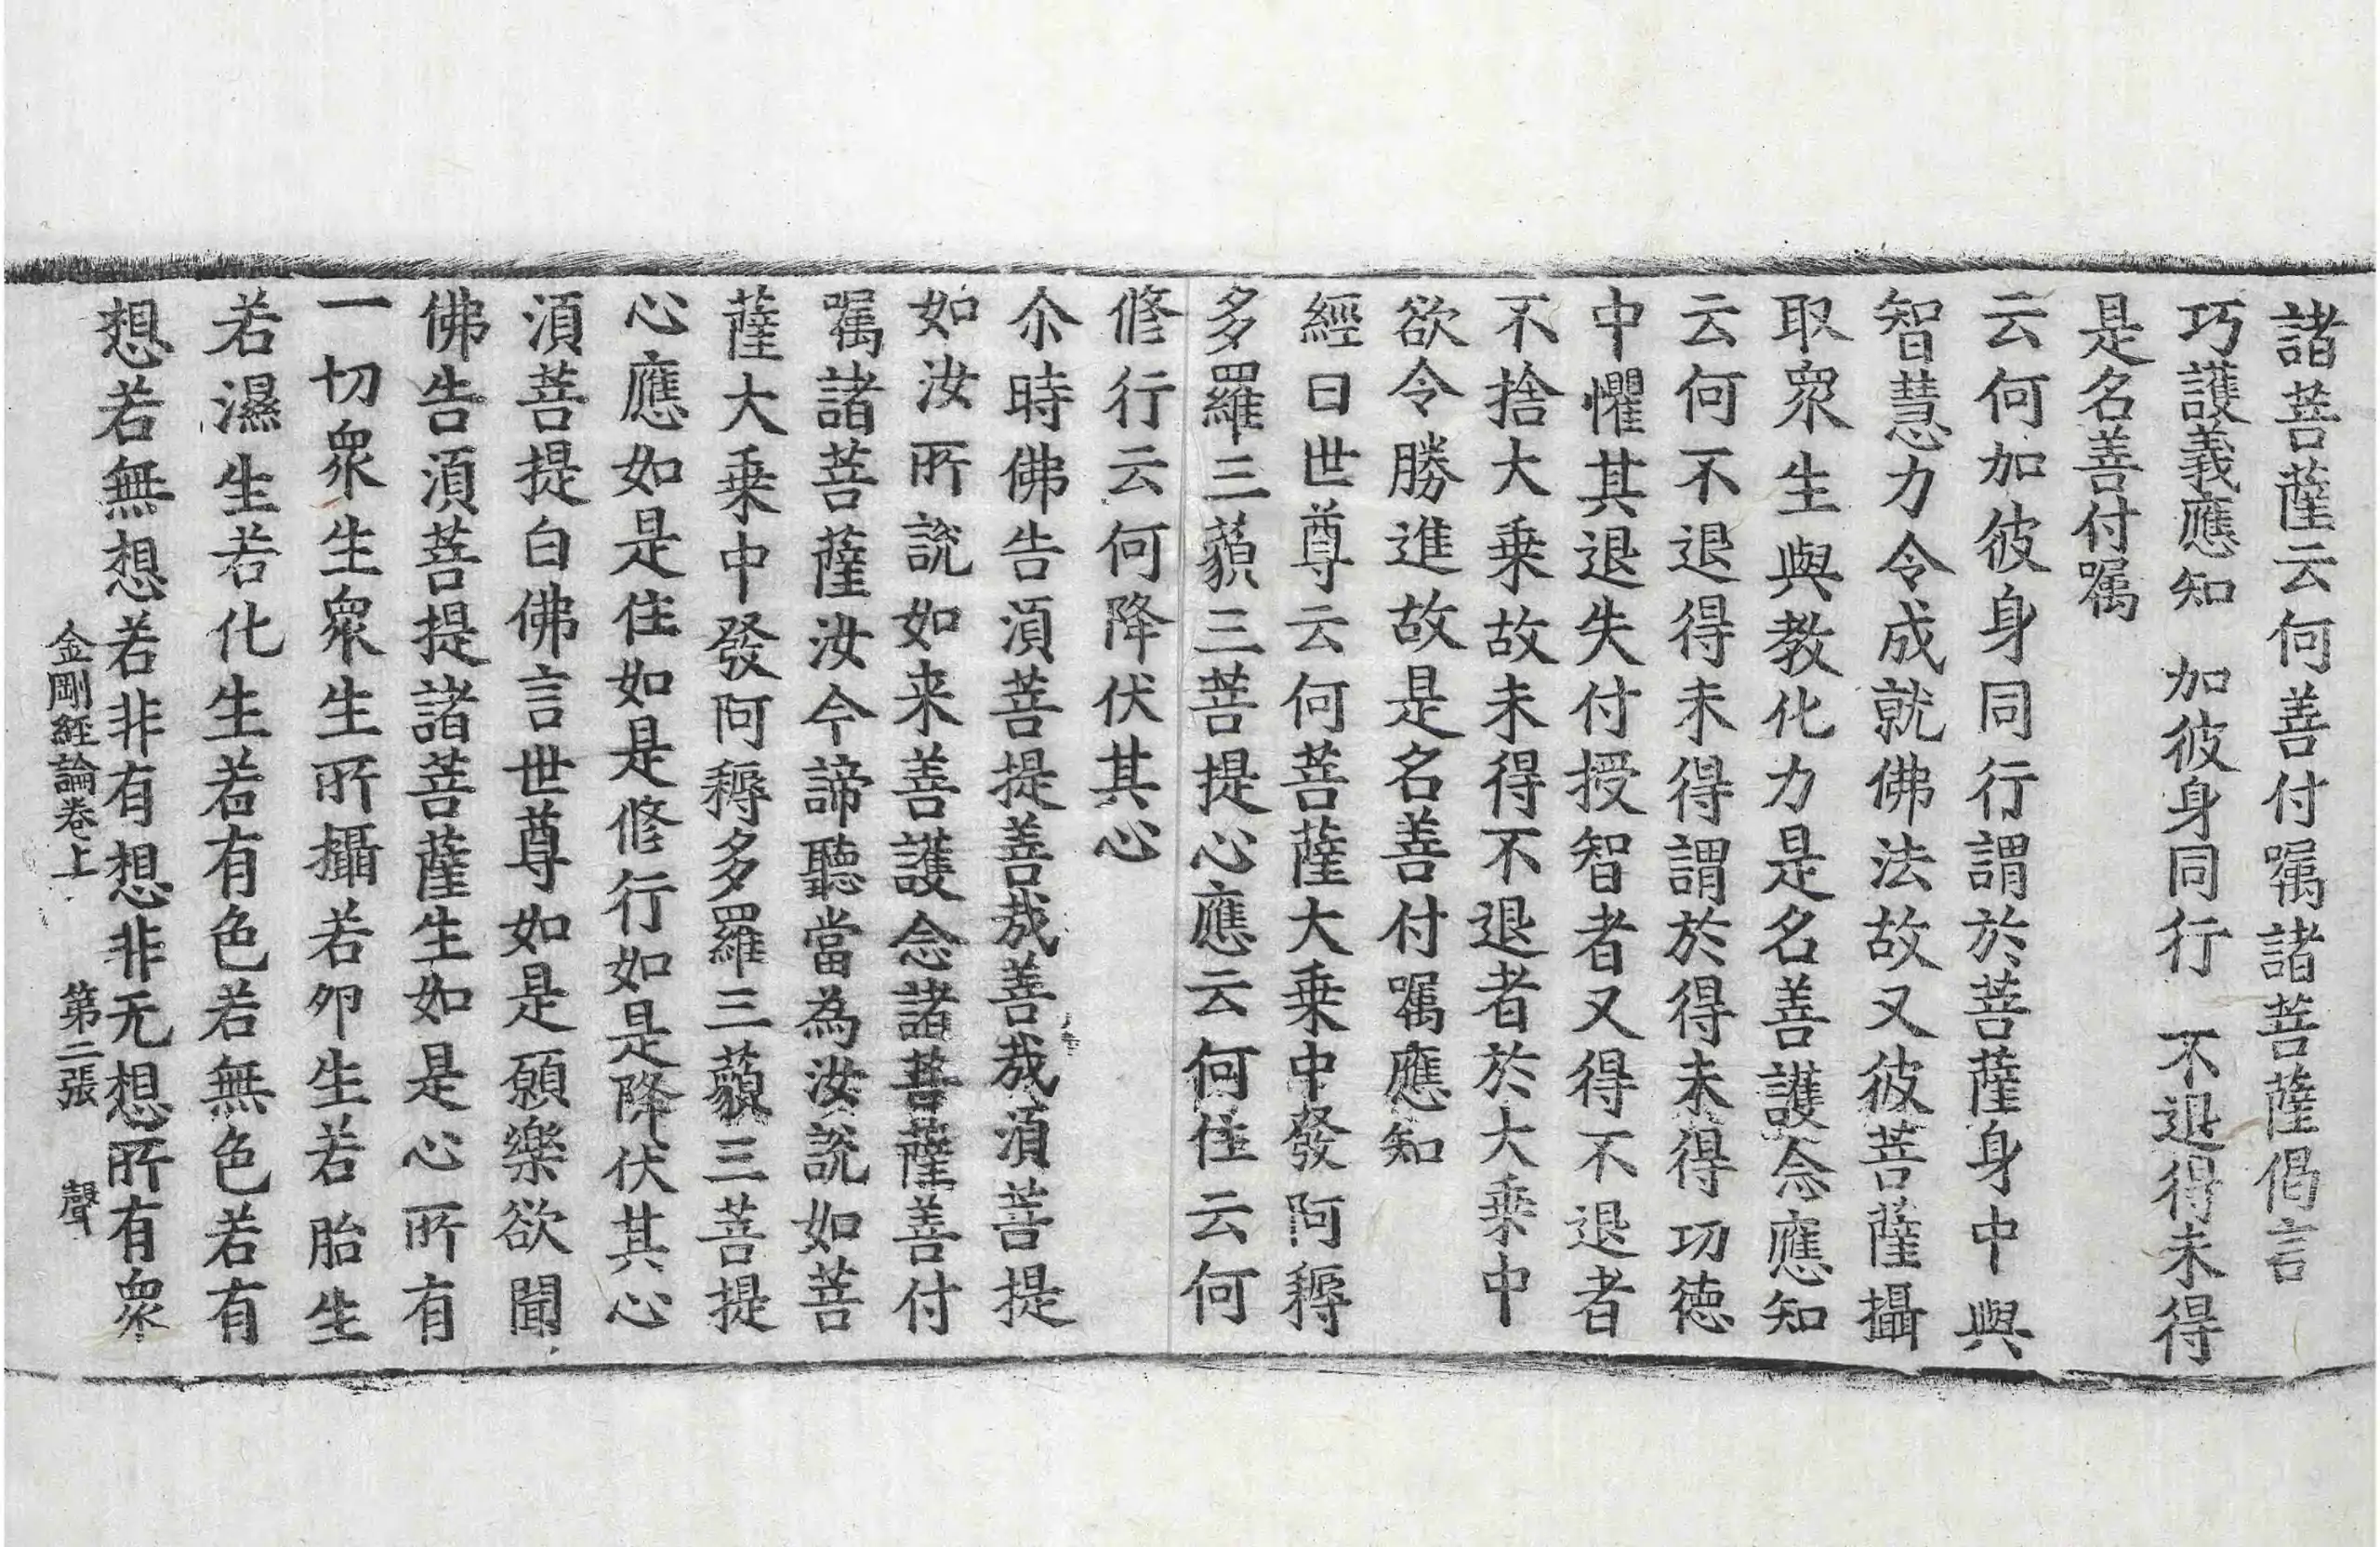 諸菩薩云何善付囑諸菩薩偈言
巧護義應知 加彼身同行 不退得未得
是名善付囑
云何加彼身同行謂於菩薩身中與
智慧力令成就佛法故又彼菩薩攝
取衆生與教化力是名善護念應知
云何不退得未得謂於得未得功德
中懼其退失付授智者又得不退者
不捨大乗故未得不退者於大乗中
欲令勝進故是名善付囑應知
經曰世尊云何菩薩大乗中發阿耨
多羅三藐三菩提心應云何住云何
修行云何降伏其心
尒時佛告湏菩提善哉善哉湏菩提
如汝所說如来善護念諸菩薩善付
囑諸菩薩汝今諦聽當為汝說如菩
薩大乗中發阿耨多羅三藐三菩提
心應如是住如是修行如是降伏其心
湏菩提白佛言世尊如是願樂欲聞
佛告湏菩提諸菩薩生如是心所有
一切衆生衆生所攝若卵生若胎生
若濕生若化生若有色若無色若有
想若無想若非有想非无想所有衆
金剛經論卷上 第二張 聲